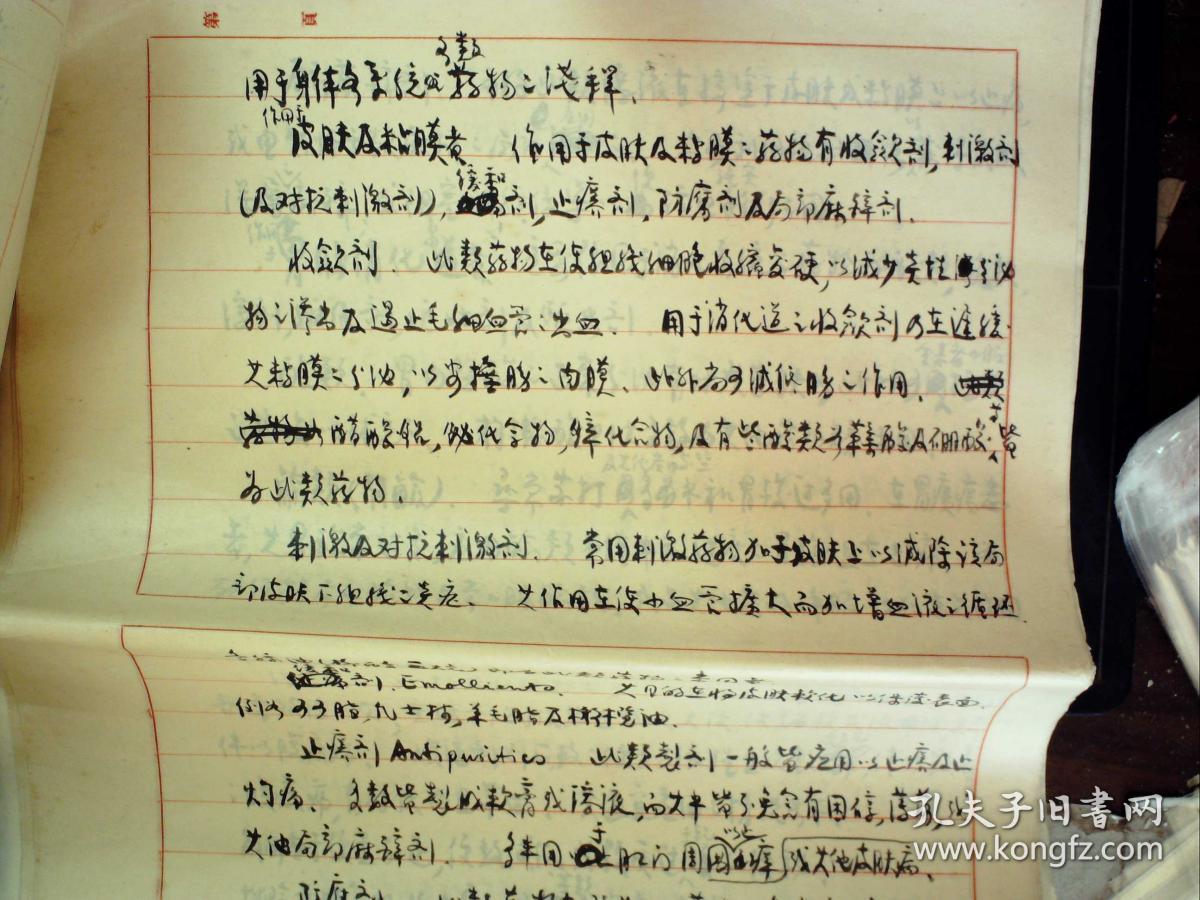 第 頁
用于身体各系统各类药物之浅释、
作用于皮肤及粘膜者 作用于皮肤及粘膜之药物有收歛剂,刺激剂
(及对抗刺激剂),缓和剂,止痒剂,防腐剂及局部麻醉剂.
收歛剂. 此类药物在使组织细胞收缩变硬,以减少炎性分泌
物之渗出及遏止毛细血管之出血. 用于消化道之收歛剂乃在
其粘膜之分泌,以安 肠之内膜、此外尚可减低肠之作用.
醋酸铅,铋化合物,锌化合物,及有些酸类如鞣酸及硼酸等皆
为此类药物.
刺激及对抗刺激剂. 常用刺激药物加于皮肤上以减除该局
部皮肤下组织之炎症. 其作用在使小血管擴大而加增血液之循环.
缓和剂. Emollients. 其目的在将皮肤软化以保护表面.
例如可可脂,凡士林,羊毛脂及 油.
止痒剂 Antipruritics 此类製剂一般皆应用以止痒及止
灼痛. 多数皆製成軟膏或溶液,而其中皆可
其他局部麻醉剂. 多半用于肛门周围以止痒或其他皮肤病.
防腐剂. 此类药物
孔夫子旧书网
www.kongfz.com